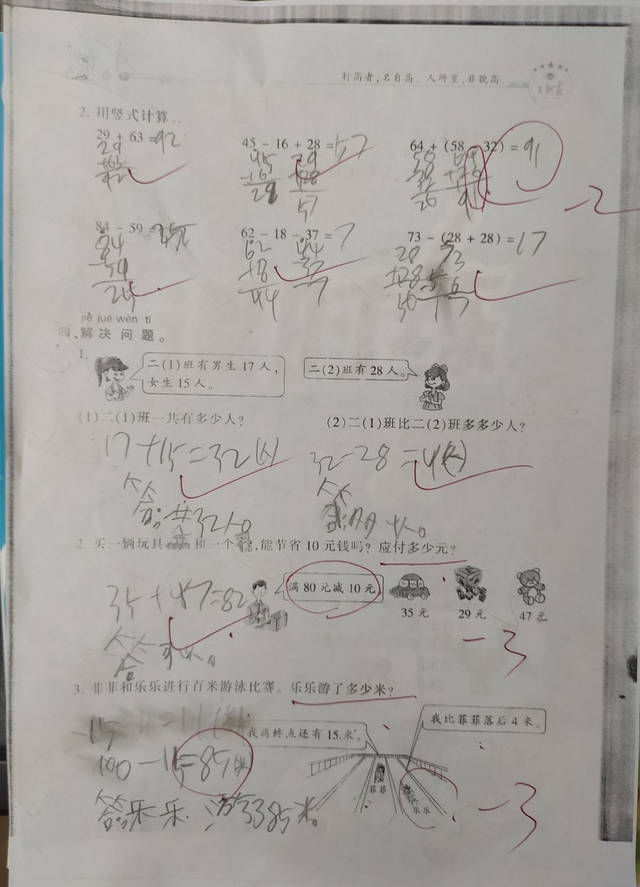 行高者,名自高。人所重,非貌高
2. 用竖式计算。
29 + 63 =92 45 - 16 + 28 =57 64 + (58 - 32) =91
-2
84 - 59 = 62 - 18 - 37 =7 73 - (28 + 28) =17
jiě jué wèn tí
四、解决问题。
1.
二(1)班有男生 17 人, 二(2)班有 28 人。
女生 15 人。
(1)二(1)班一共有多少人? (2)二(1)班比二(2)班多多少人?
17+15=32(人) 32-28=4(人)
答:共32人。 答:多4人。
2. 买一辆玩具 和一个 ,能节省 10 元钱吗? 应付多少元?
35+47=82 满 80 元减 10 元
35 元 29 元 47 元
-3
3. 菲菲和乐乐进行百米游泳比赛。乐乐游了多少米?
我离终点还有 15 米。 我比菲菲落后 4 米。
100-15=85(米)
菲菲 乐乐
-3
答:乐乐 游了85米。